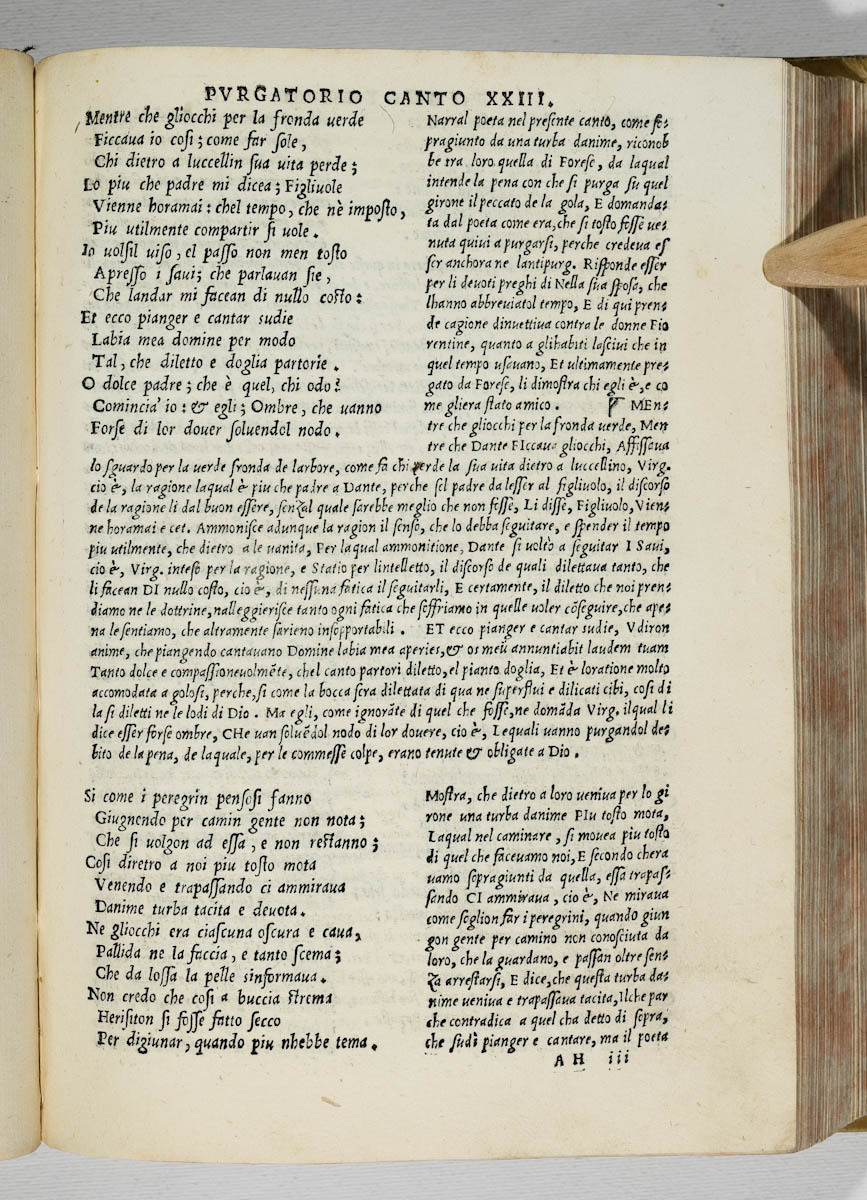 PVRGATORIO CANTO XXIII.
Mentre che gliocchi per la fronda uerde
Ficcaua io cosi; come far sole,
Chi dietro a luccellin sua uita perde;
Lo piu che padre mi dicea; Figliuole
Vienne horamai: chel tempo, che nè imposto,
Piu utilmente compartir si uole.
Io uolsil uiso, el passo non men tosto
Apresso i saui; che parlauan sie,
Che landar mi facean di nullo costo:
Et ecco pianger e cantar sudie
Labia mea domine per modo
Tal, che diletto e doglia partorie.
O dolce padre; che è quel, chi odo?
Comincia' io: & egli; Ombre, che uanno
Forse di lor douer soluendol nodo.
Narral poeta nel presente canto, come so-
pragiunto da una turba danime, riconob
be tra loro quella di Forese, da laqual
intende la pena con che si purga su quel
girone il peccato de la gola, E domanda-
ta dal poeta come era, che si tosto fosse ue-
nuta quiui a purgarsi, perche credeua es
ser anchora ne lantipurg. Risponde esser
per li deuoti preghi di Nella sua sposa, che
lhanno abbreuiatol tempo, E di qui pren-
de cagione dinuettiua contra le donne Fio
rentine, quanto a glihabiti lasciui che in
quel tempo usauano, Et ultimamente pre-
gato da Forese, li dimostra chi egli è, e co
me gliera stato amico. MEn-
tre che gliocchi per la fronda uerde, Men
tre che Dante FIccaua gliocchi, Affissaua
lo sguardo per la uerde fronda de larbore, come fa chi perde la sua uita dietro a luccellino, Virg.
cio è, la ragione laqual è piu che padre a Dante, perche sel padre da lesser al figliuolo, il discorso
de la ragione li dal buon essere, senzal quale sarebbe meglio che non fosse, Li disse, Figliuolo, Vien-
ne horamai e cet. Ammonisce adunque la ragion il senso, che lo debba seguitare, e spender il tempo
piu utilmente, che dietro a le uanita, Per laqual ammonitione, Dante si uoltò a seguitar I Saui,
cio è, Virg. inteso per la ragione, e Statio per lintelletto, il discorso de quali dilettaua tanto, che
li facean DI nullo costo, cio è, di nessuna fatica il seguitarli, E certamente, il diletto che noi pren-
diamo ne le dottrine, nalleggierisce tanto ogni fatica che soffriamo in quelle uoler cōseguire, che ape-
na le sentiamo, che altramente sarieno insopportabili. ET ecco pianger e cantar sudie, Vdiron
anime, che piangendo cantauano Domine labia mea aperies, & os meū annuntiabit laudem tuam
Tanto dolce e compassioneuolmēte, chel canto partori diletto, el pianto doglia, Et è loratione molto
accomodata a golosi, perche, si come la bocca sera dilettata di qua ne superflui e dilicati cibi, cosi di
la si diletti ne le lodi di Dio. Ma egli, come ignorāte di quel che fosse, ne domāda Virg. ilqual li
dice esser forse ombre, CHe uan soluēdol nodo di lor douere, cio è, Lequali uanno purgandol de-
bito de la pena, de laquale, per le commesse colpe, erano tenute & obligate a Dio.
Si come i peregrin pensosi fanno
Giugnendo per camin gente non nota;
Che si uolgon ad essa, e non restanno;
Cosi diretro a noi piu tosto mota
Venendo e trapassando ci ammiraua
Danime turba tacita e deuota.
Ne gliocchi era ciascuna oscura e caua,
Pallida ne la faccia, e tanto scema;
Che da lossa la pelle sinformaua.
Non credo che cosi a buccia strema
Herisiton si fosse fatto secco
Per digiunar, quando piu nhebbe tema.
Mostra, che dietro a loro ueniua per lo gi
rone una turba danime PIu tosto mota,
Laqual nel caminare, si mouea piu tosto
di quel che faceuamo noi, E secondo chera
uamo sopragiunti da quella, essa trapas-
sando CI ammiraua, cio è, Ne miraua
come soglion far i peregrini, quando giun
gon gente per camino non conosciuta da
loro, che la guardano, e passan oltre sen-
za arrestarsi, E dice, che questa turba da-
nime ueniua e trapassaua tacita, Ilche par
che contradica a quel cha detto di sopra,
che sudì pianger e cantare, ma il poeta
AH iii